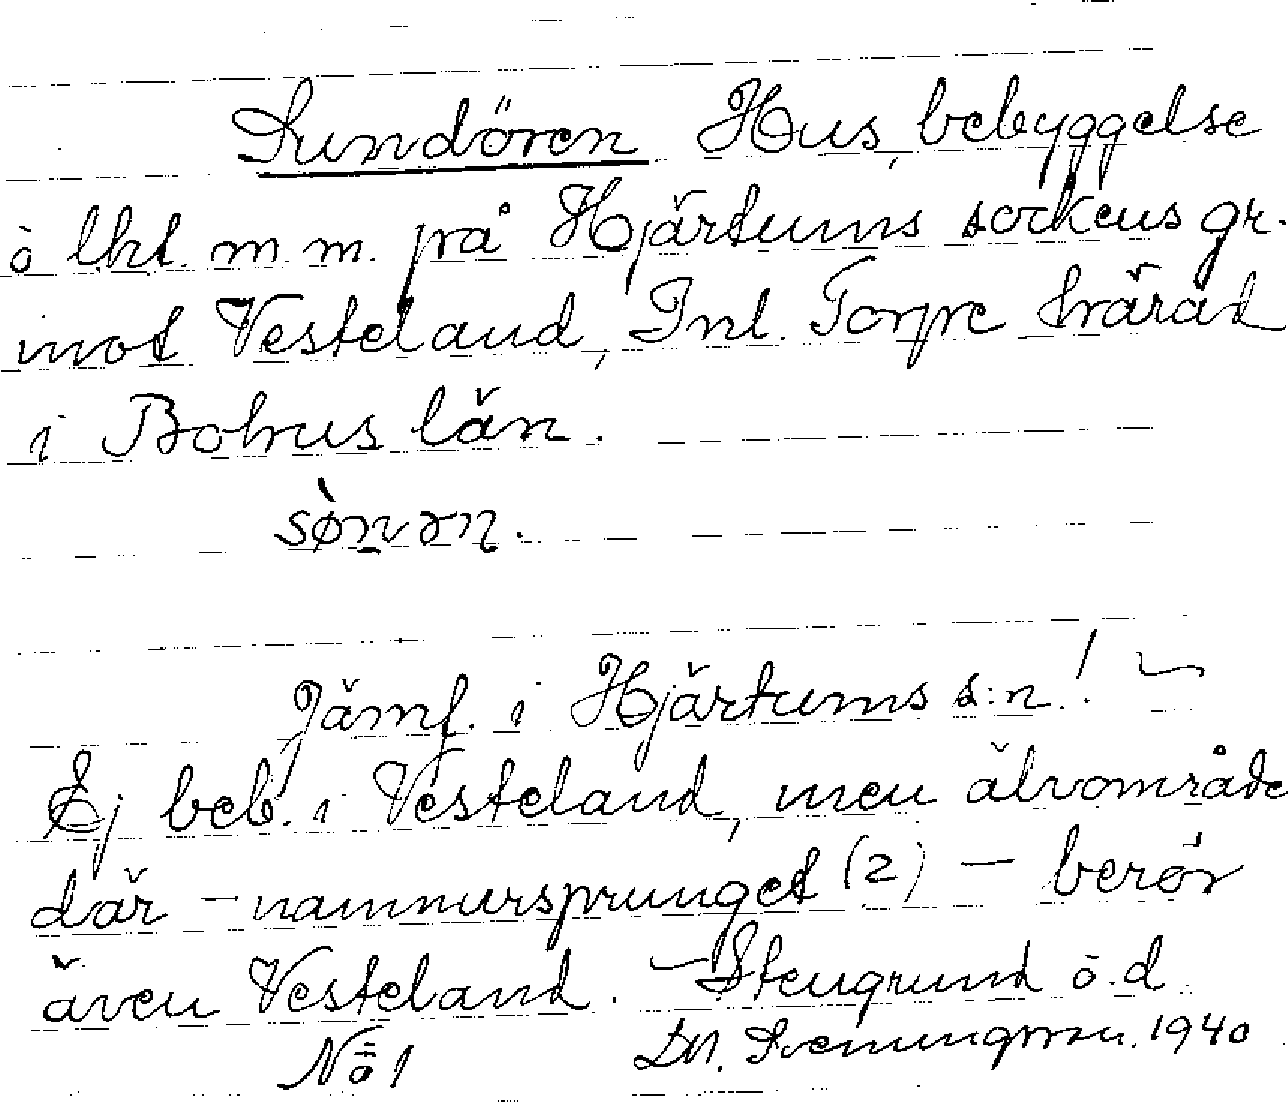 Sundören Hus, bebyggelse
ò lht. m. m. på Hjärtums sockens gr.
mot Vesteland, Inl. Torpe härad
i Bohus län.
sø̀nɷrn.
Jämf. i Hjärtums s:n! ~
Ej beb. i Vesteland, men älvområde
där - namnursprunget (2) — berör
även Vesteland. — Stengrund o.d.
No 1 D.N. Svenungsson. 1940